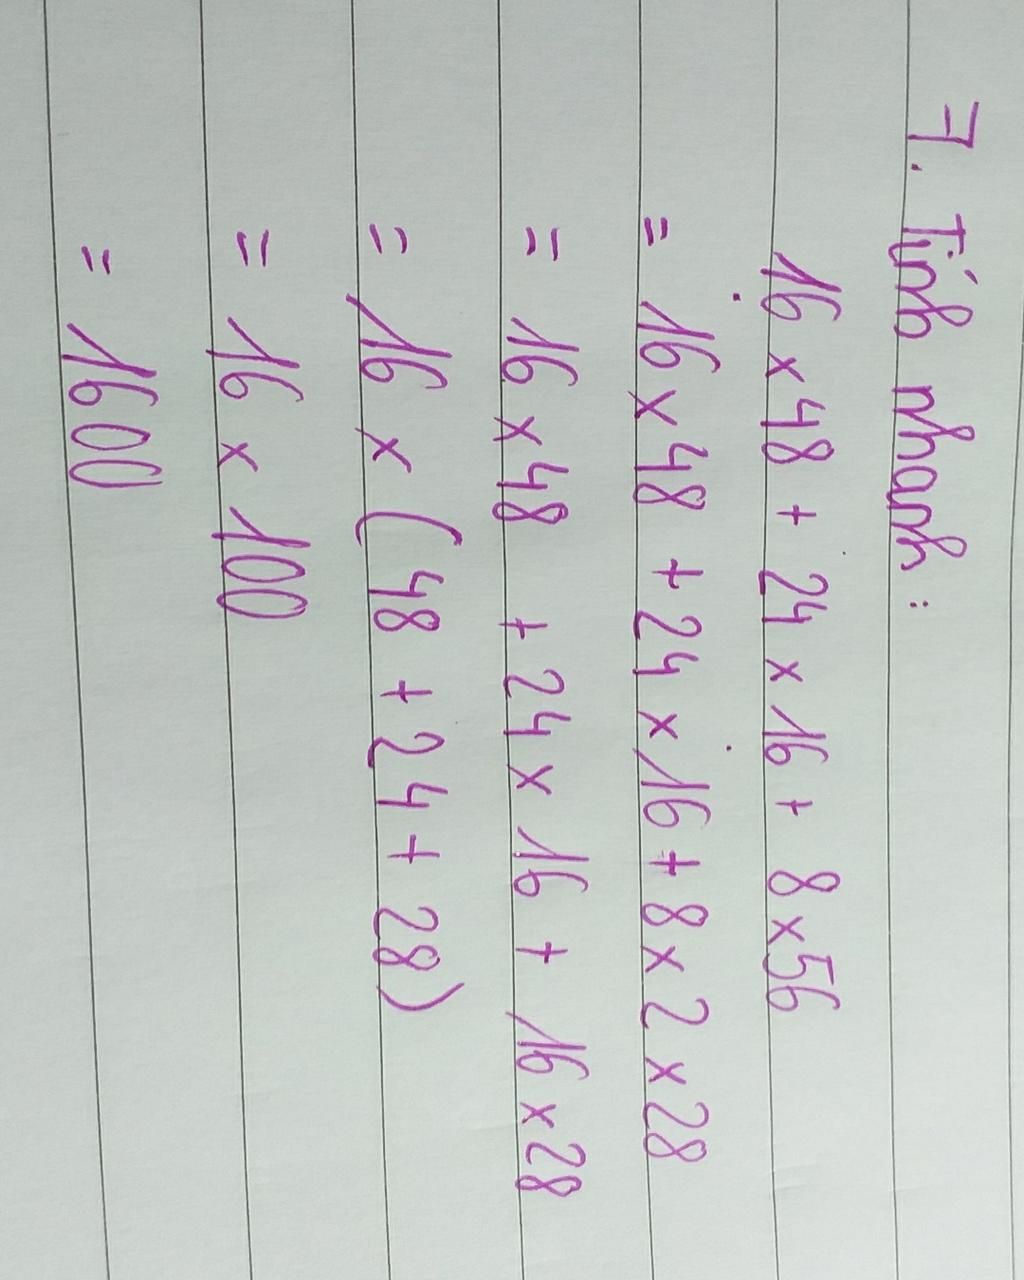 7. Tính nhanh:
16 x 48 + 24 x 16 + 8 x 56
= 16 x 48 + 24 x 16 + 8 x 2 x 28
= 16 x 48 + 24 x 16 + 16 x 28
= 16 x (48 + 24 + 28)
= 16 x 100
= 1600